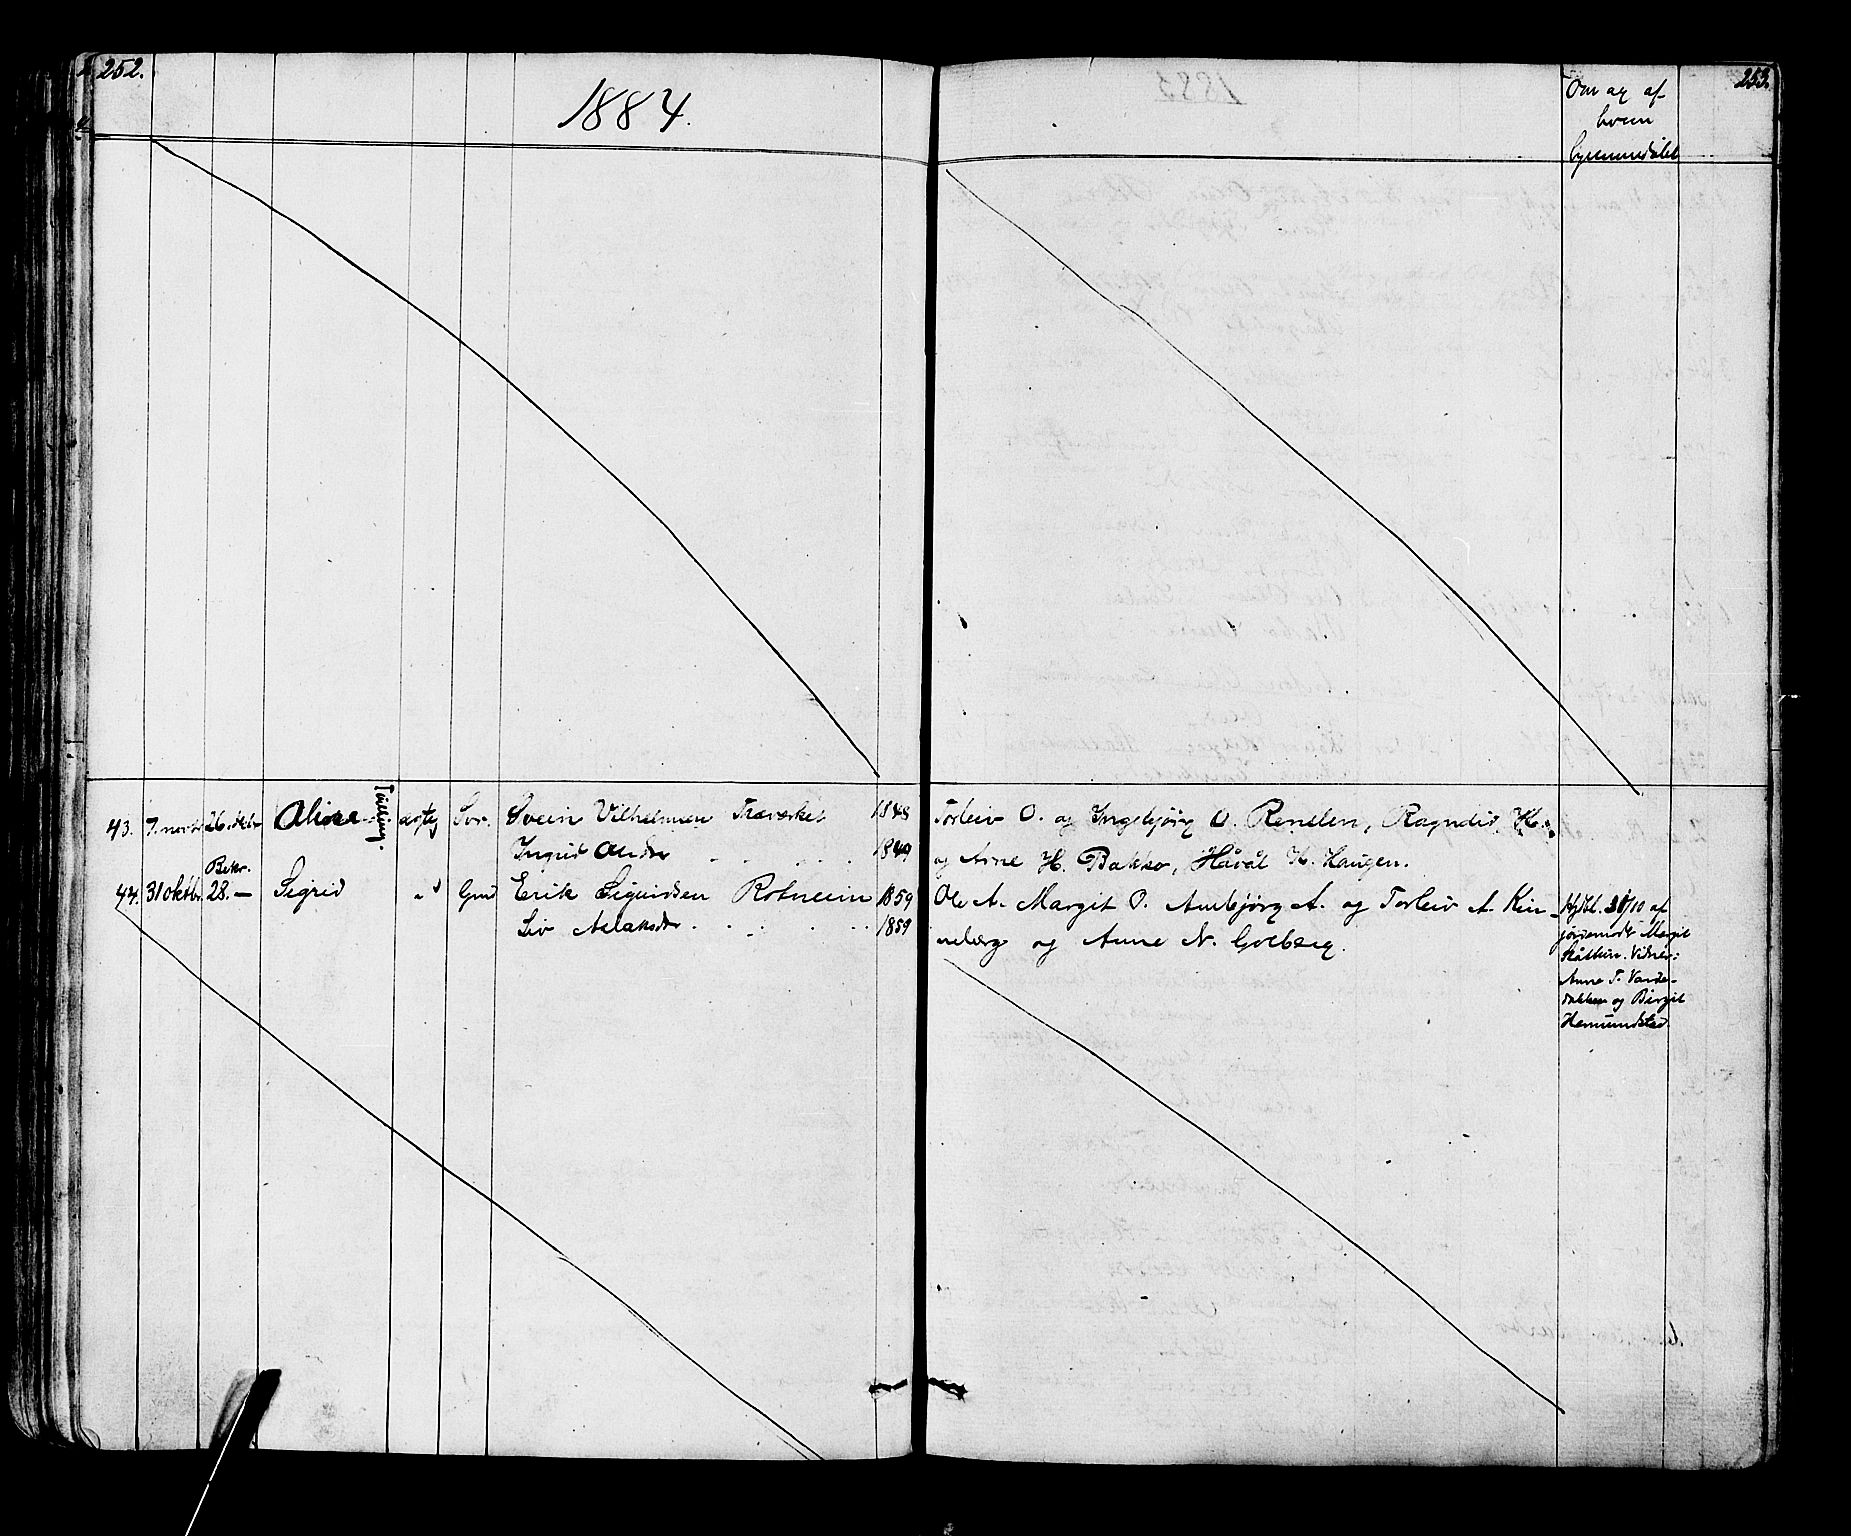 252.
1884.
253.
Om og af
hvem
hjemmedøbt
43. 7. novbr 26. dcbr Olina Tvilling. ægte Svr. Svein Vilhelmsen Træverket 1848
Ingrid Olsdr 1849
Torleiv O. og Ingebjörg O. Renslen, Ragndid H.
og Arne H. Bakko, Håvål H. Haugen.
Bekr.
44. 31 oktbr. 28. — Sigrid Gmd Erik Sigurdsen Rotneim 1859
Liv Aslaksdr 1859
Ole A. Margit O. Ambjörg A. og Torleiv A. Kin-
neberg og Anne N. Golberg.
Hjdbt. 31/10 af
jordemodr Margit
Vidner:
Anne T. Varde-
bakken og Birgit
Hemundstad.